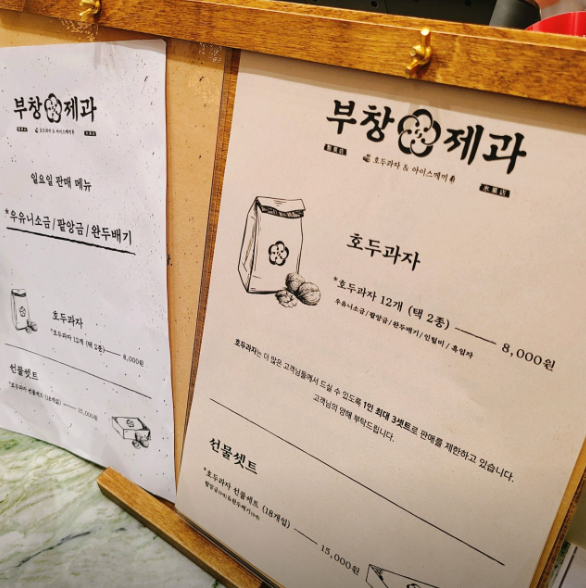 부창제과
호두과자 & 아이스께끼
일요일 판매 메뉴
*우유니소금/팥앙금/완두배기
호두과자
*호두과자 12개 (택 2종) 8,000원
선물셋트
*호두과자 선물세트 (18개입) 15,000원
부창제과
호두과자 & 아이스께끼
호두과자
*호두과자 12개 (택 2종) 8,000원
우유니소금/팥앙금/완두배기/인절미/흑임자
호두과자는 더 많은 고객님들께서 드실 수 있도록 1인 최대 3셋트로 판매를 제한하고 있습니다.
고객님의 양해 부탁드립니다.
선물셋트
*호두과자 선물세트 (18개입) 15,000원